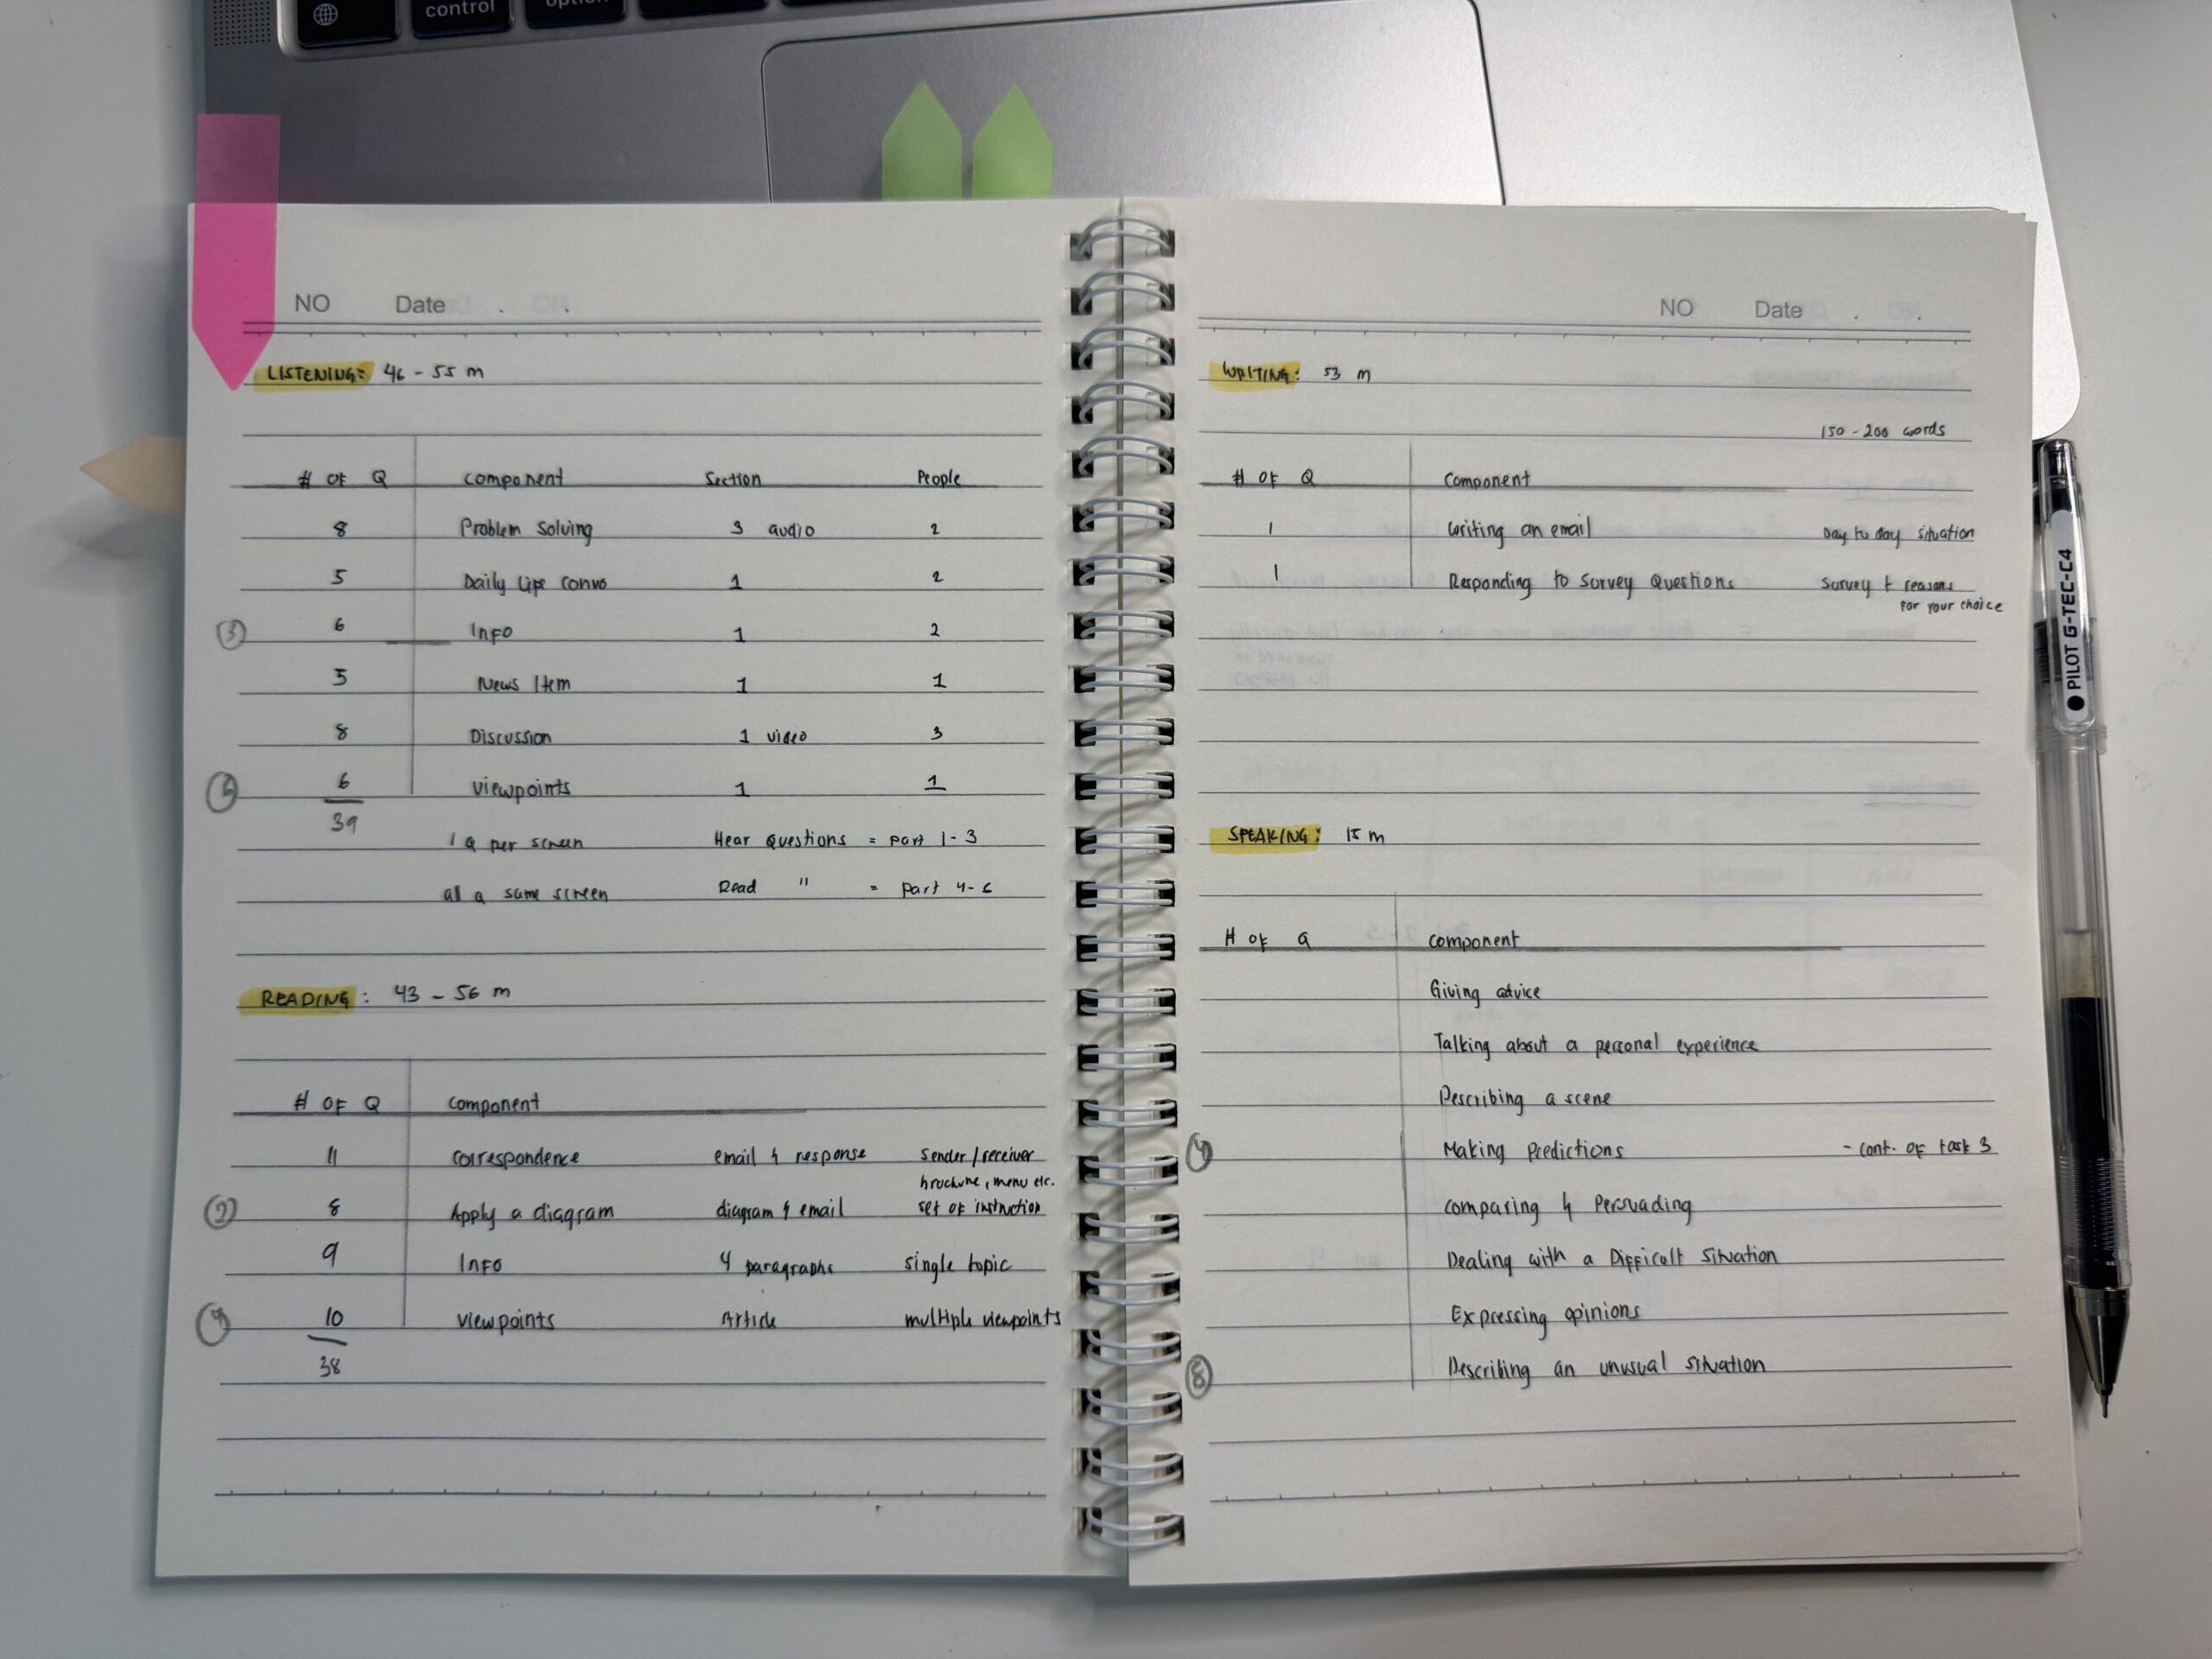 control
option
NO Date . .
LISTENING: 46 - 55 m
# OF Q component Section People
8 Problem Solving 3 audio 2
5 Daily Life convo 1 2
③ 6 Info 1 2
5 News Item 1 1
8 Discussion 1 video 3
6 viewpoints 1 1
39
1 Q per screen Hear Questions = part 1-3
all Q same screen Read " = part 4-6
READING: 43 - 56 m
# OF Q component
11 correspondence email & response sender/receiver
brochure, menu etc.
② 8 Apply a diagram diagram & email set of instruction
9 Info 4 paragraphs single topic
④ 10 viewpoints Article multiple viewpoints
38
NO Date . .
WRITING: 53 m
150 - 200 words
# OF Q Component
1 Writing an email Day to day situation
1 Responding to Survey Questions Survey + reasons
for your choice
SPEAKING: 15 m
# OF Q component
Giving advice
Talking about a personal experience
Describing a scene
④ Making Predictions - cont. of task 3
Comparing & Persuading
Dealing with a Difficult Situation
Expressing opinions
⑧ Describing an unusual situation
PILOT G-TEC-C4